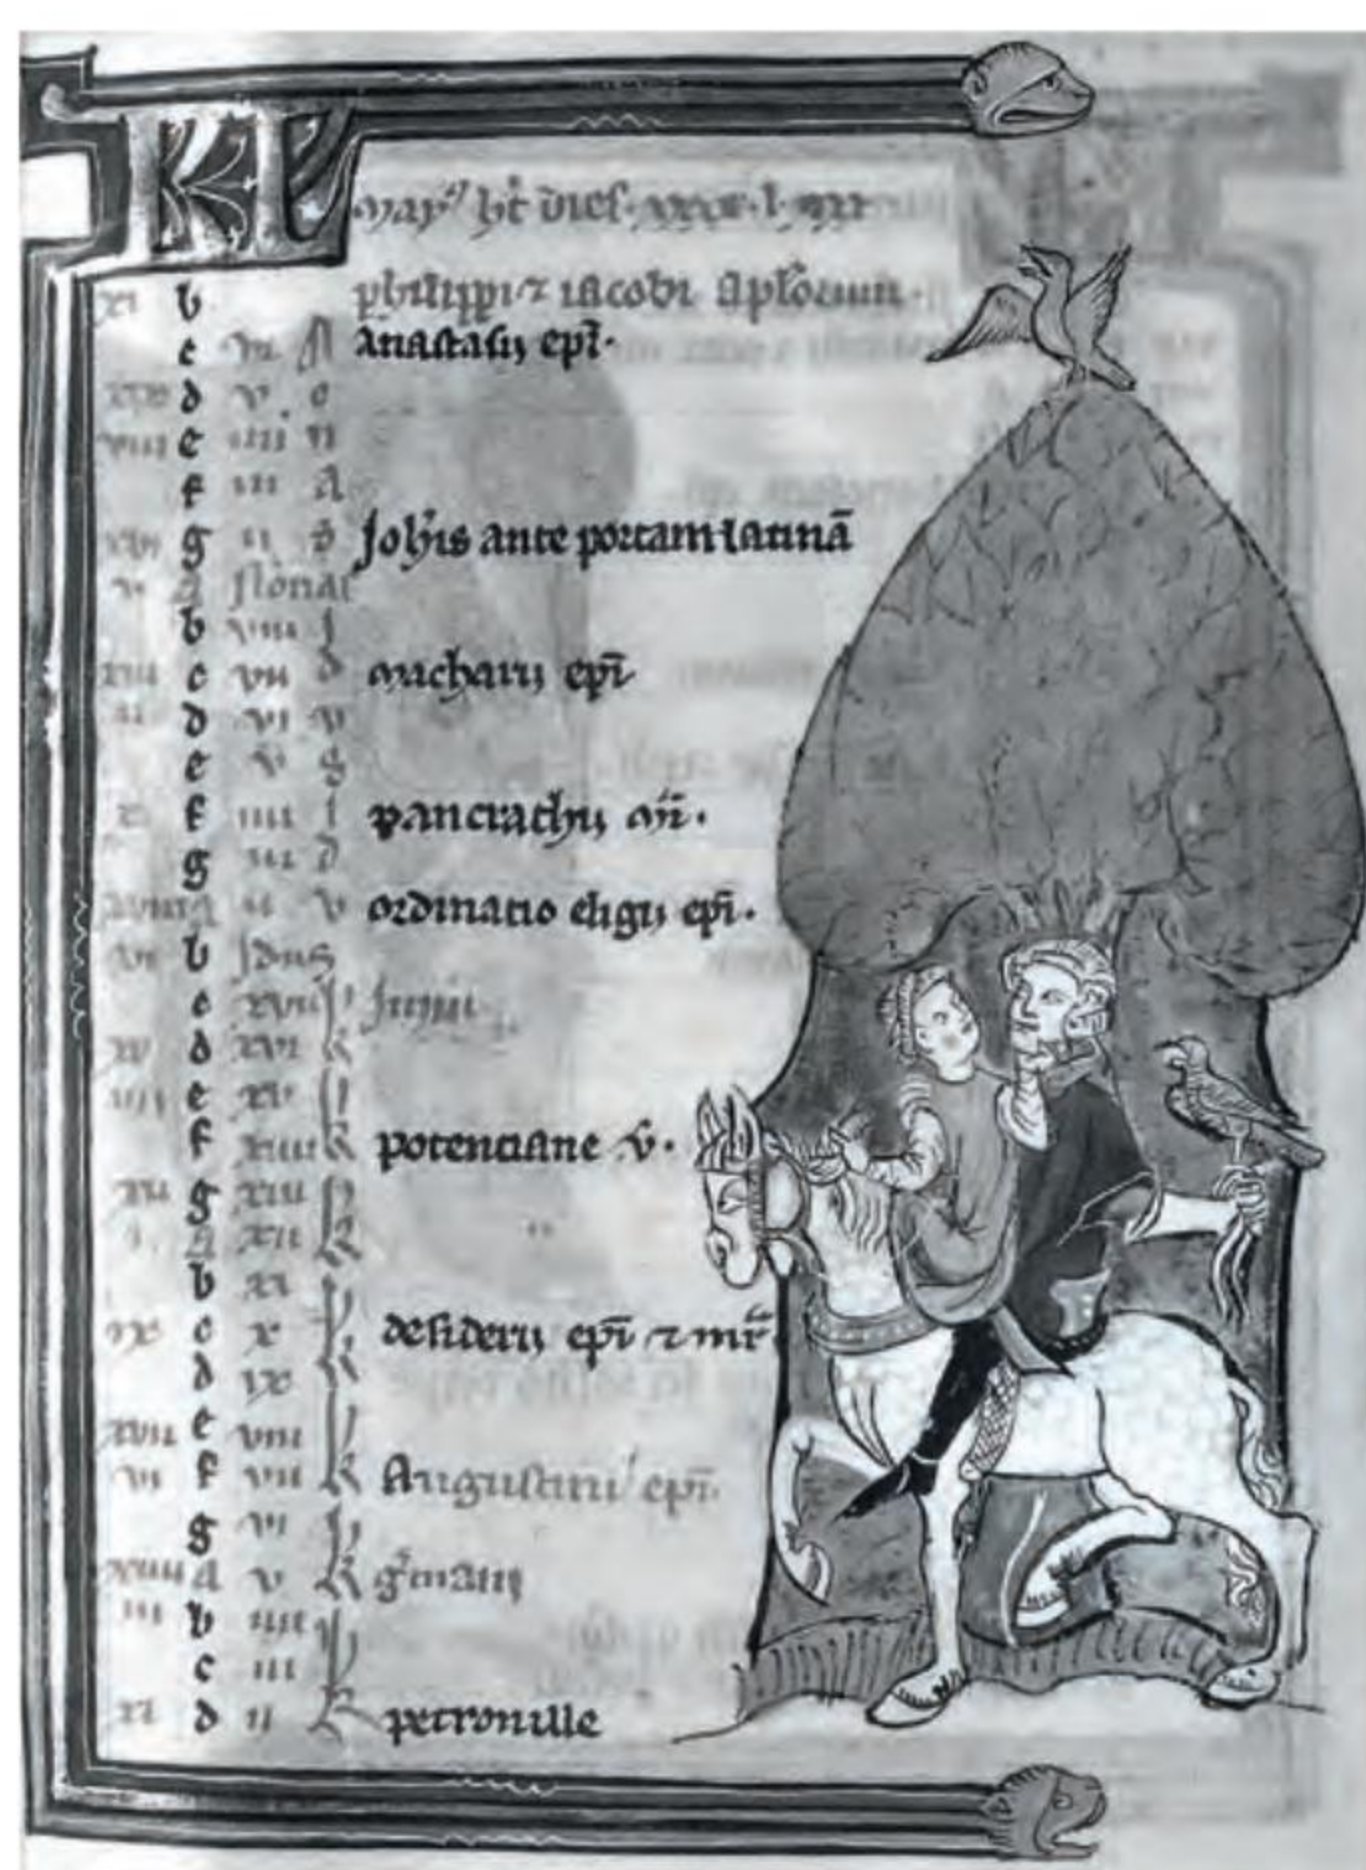 KL
may9 ht dies
b philippi ⁊ iacobi aplorum.
c vi anastasij epi.
d v
e iiii
f iii
g ii Johis ante portam latinā
v a nonas
b viii
xiii c vii macharij epī
ii d vi
e v
x f iiii pancrachij mr̄.
g iii
a ii ordinatio eligij epī.
b Idus
c xvii Junii
xv d xvi k
e xv
f xiiii k potenciane v.
xii g xiii
i a xii k
b xi
ix c x desiderij epī ⁊ mr̄
d ix k
xvii e viii
vi f vii k Augustini epī.
g vi
xiiii a v k gmani
iii b iiii
c iii
xi d ii k petronille